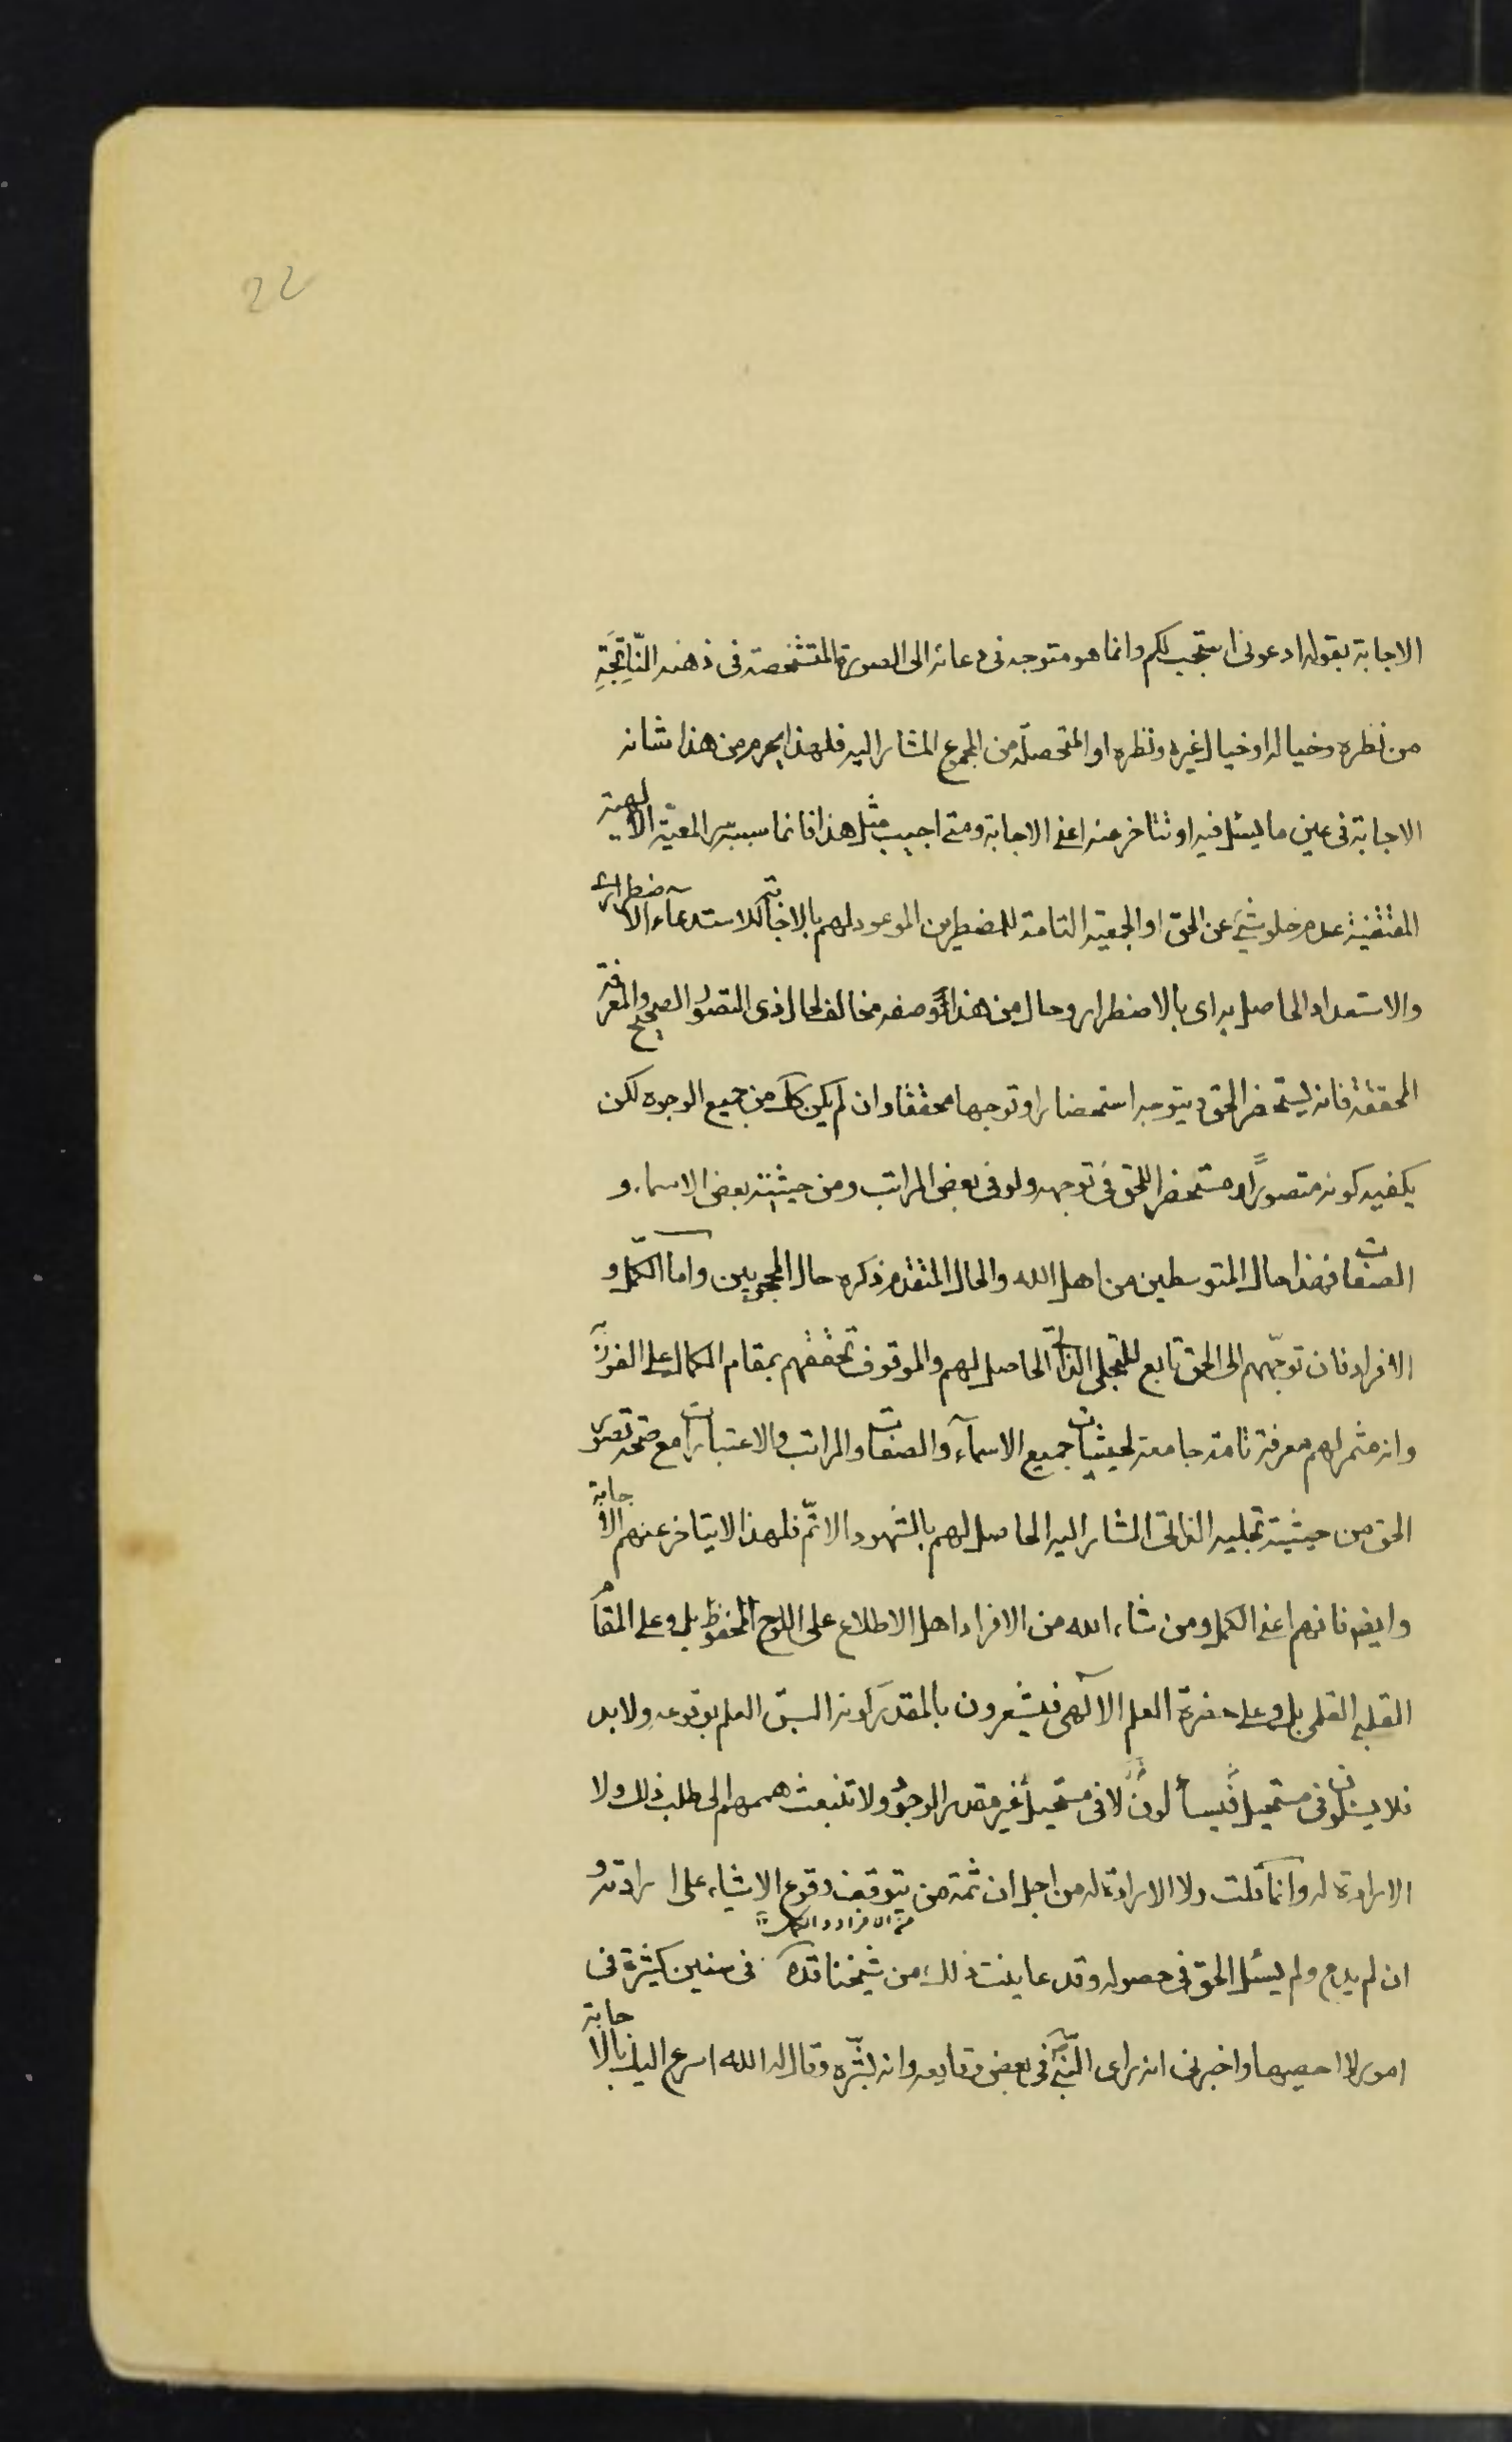 22
الاجابة بقوله ادعونى استجب لكم وانما هو متوجه فى دعائه الى الصورة المتشخصة فى ذهنه الناتجة
من نظره وخياله او خيال غيره ونظره او المتحصلة من المجموع المشار اليه فلهذا يحرم من هذا شانه
الاجابة فى عين ما يسئل فيه او تتاخر عنه اعنى الاجابة ومتى اجيب مثل هذا فانما سببه سر المعية الالهية
المقتضية عدم خلو شئ عن الحق او الجمعية التامة للمضطرين الموعود لهم بالاجابة للاستدعاء الاضطرارى
والاستعداد الحاصل به اى بالاضطرار وحال من هذا وصفه مخالف لحال ذى التصور الصحيح والمعرفة
المحققة فانه يستحضر الحق ويتوجه استحضارا وتوجها محققا وان لم يكن ذلك من جميع الوجوه لكن
يكفيه كونه متصورا ومستحضرا للحق فى توجهه ولو فى بعض المراتب ومن حيثية بعض الاسماء و
الصفات فهذا حال المتوسطين من اهل الله والحال المتقدم ذكره حال المحجوبين واما الكمل و
الافراد فان توجههم الى الحق تابع للتجلى الذاتى الحاصل لهم والموقوف تحققهم بمقام الكمال على الفوز به
وانه مثمر لهم معرفة تامة جامعة لحيثيات جميع الاسمآء والصفات والمراتب والاعتبارات مع صحة تصور
الحق من حيثية تجليه الذاتى المشار اليه الحاصل لهم بالشهود الاتم فلهذا لا يتاخر عنهم الاجابة
وايضا فانهم اعنى الكمل ومن شاء الله من الافراد اهل الاطلاع على اللوح المحفوظ بل وعلى المقام
القلمى بل وعلى حضرة العلم الالهى فيشعرون بالمقدر كونه السبق العلم بوقوعه ولا بد
فلا يسئلون فى مستحيل غير مقدر الوجود ولا تنبعث هممهم الى طلب ذلك ولا
الارادة له وانما قلت ولا الارادة له من اجل ان ثمة من يتوقف وقوع الاشياء على ارادته و
من الافراد والكمل
ان لم يدع ولم يسئل الحق فى حصوله وقد عاينت ذلك من شيخنا قده فى سنين كثيرة فى
امور لا احصيها واخبرنى انه راى النبى فى بعض وقايعه وانه بشره وقال له الله اسرع اليك بالاجابة